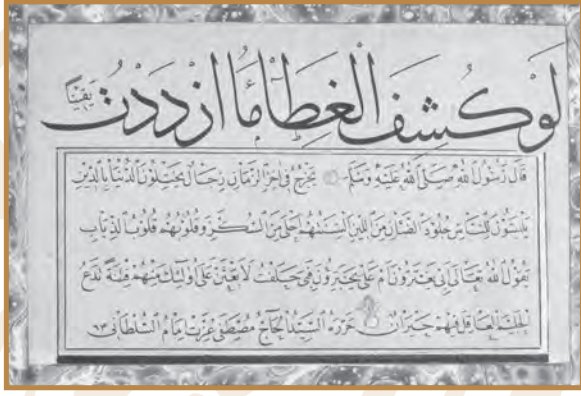 لَوْ كُشِفَ الْغِطَا مَا ازْدَدْتُ يَقِينًا
قَالَ رَسُولُ اللهِ صَلَّى اللهُ عَلَيْهِ وَسَلَّمَ يَخْرُجُ فِي اخِرِ الزَّمَانِ رِجَالٌ يَخْتِلُونَ الدُّنْيَا بِالدِّينِ
يَلْبَسُونَ لِلنَّاسِ جُلُودَ الضَّأْنِ مِنَ اللِّينِ اَلْسِنَتُهُمْ اَحْلَى مِنَ السُّكَّرِ وَقُلُوبُهُمْ قُلُوبُ الذِّيَابِ
يَقُولُ اللهُ تَعَالَى اَبِي يَغْتَرُّونَ اَمْ عَلَيَّ يَجْتَرِؤُنَ فَبِي حَلَفْتُ لَاَبْعَثَنَّ عَلَى اُولٰئِكَ مِنْهُمْ فِتْنَةً تَدَعُ
الْحَلِيمَ الْعَاقِلَ فِيهِمْ حَيْرَانَ حَرَّرَهُ السَّيِّدُ الْحَاجُّ مُصْطَفَى عِزَّتْ اِمَامُ السُّلْطَانِي ٦٣